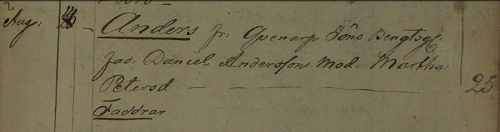 Aug: Anders fr: Qvenarp Jöns Bengtsg.
fad. Daniel Andersson Mod. Martha
Petersd — — — — — 25
Faddrar